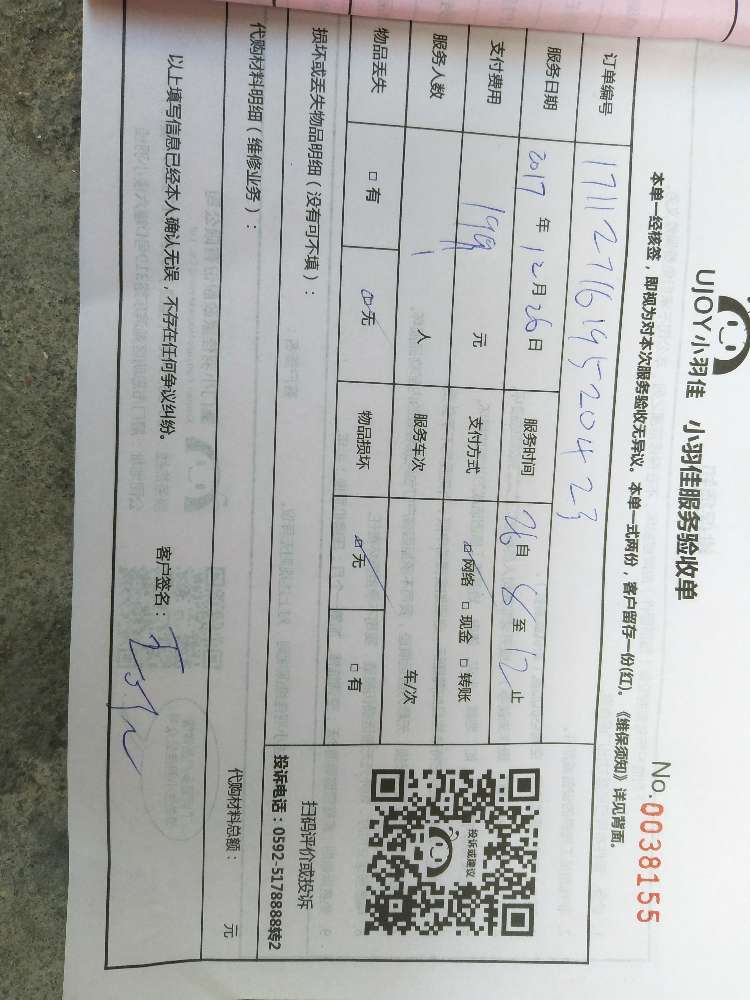 UJOY小羽佳 小羽佳服务验收单
No.0038155
本单一经核签，即视为对本次服务验收无异议。本单一式两份，客户留存一份(红)。《维保须知》详见背面。
订单编号 1711271619520423
服务日期 2017 年 12 月 26 日 服务时间 26 自 8 至 12 止
支付费用 199 元 支付方式 ☑网络 □现金 □转账
服务人数 1 人 服务车次 车/次
物品丢失 □有 ☑无 物品损坏 ☑无 □有
投诉或建议
扫码评价或投诉
投诉电话：0592-5178888转2
损坏或丢失物品明细（没有可不填）：
代购材料明细（维修业务）： 代购材料总额： 元
以上填写信息已经本人确认无误，不存在任何争议纠纷。 客户签名：